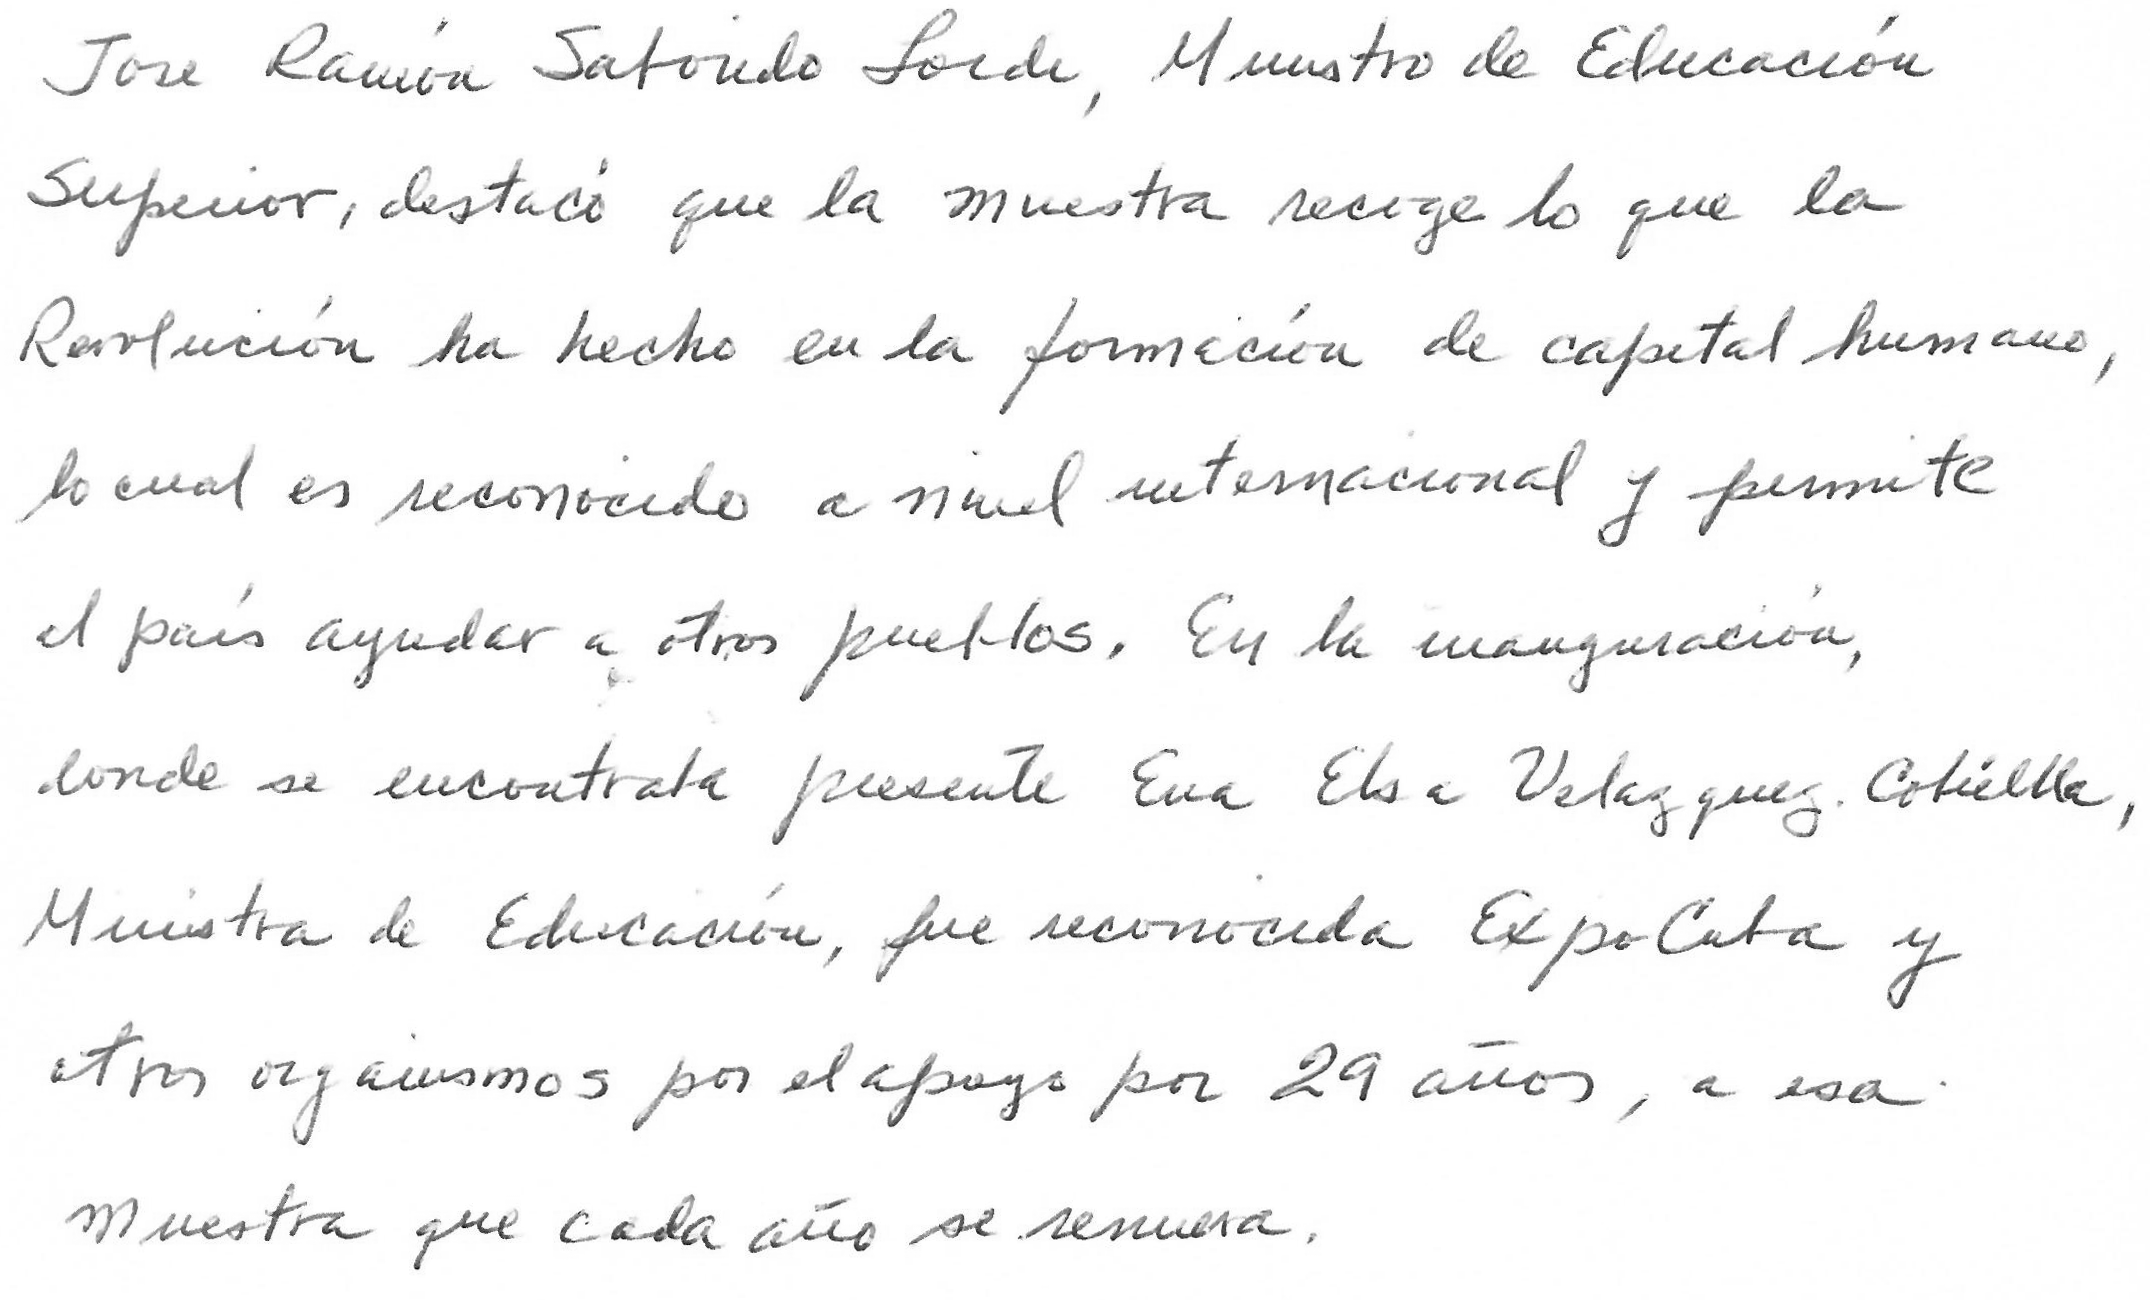 Jose Ramón Saborido Loidi, Ministro de Educación
Superior, destacó que la muestra recoge lo que la
Revolución ha hecho en la formación de capital humano,
lo cual es reconocido a nivel internacional y permite
al país ayudar a otros pueblos. En la inauguración,
donde se encontraba presente Ena Elsa Velazquez Cobiella,
Ministra de Educación, fue reconocida ExpoCuba y
otros organismos por el apoyo por 29 años, a esa
muestra que cada año se renueva.